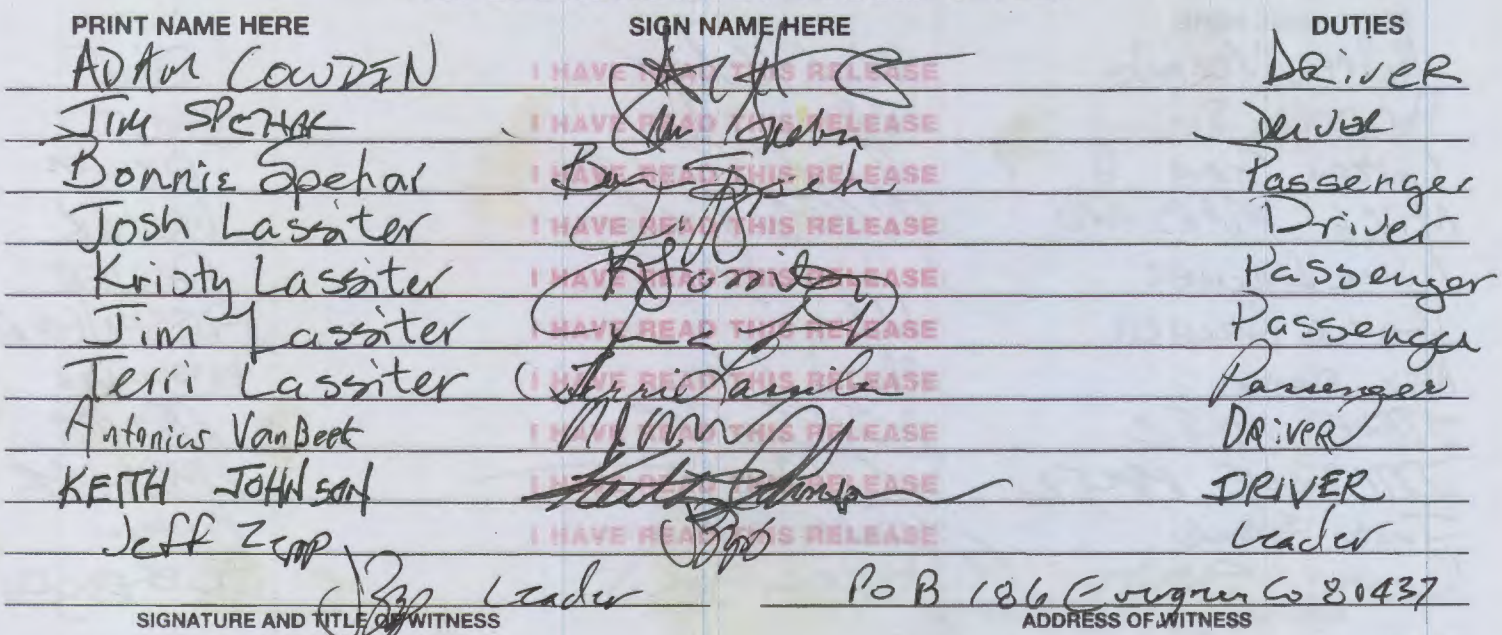 PRINT NAME HERE SIGN NAME HERE DUTIES
ADAM COWDEN I HAVE READ THIS RELEASE DRiveR
JIM SPEHAR I HAVE READ THIS RELEASE DRIVER
Bonnie Spehar I HAVE READ THIS RELEASE Passenger
Josh Lassiter I HAVE READ THIS RELEASE Driver
Kristy Lassiter I HAVE READ THIS RELEASE Passenger
Jim Lassiter I HAVE READ THIS RELEASE Passenger
Terri Lassiter I HAVE READ THIS RELEASE Terrie Lassiter Passenger
Antonius VanBeek I HAVE READ THIS RELEASE DRiveR
KEITH JOHNSON I HAVE READ THIS RELEASE Keith Johnson DRIVER
Jeff Zepp I HAVE READ THIS RELEASE Leader
Leader PO B 186 Evergreen Co 80437
SIGNATURE AND TITLE OF WITNESS ADDRESS OF WITNESS